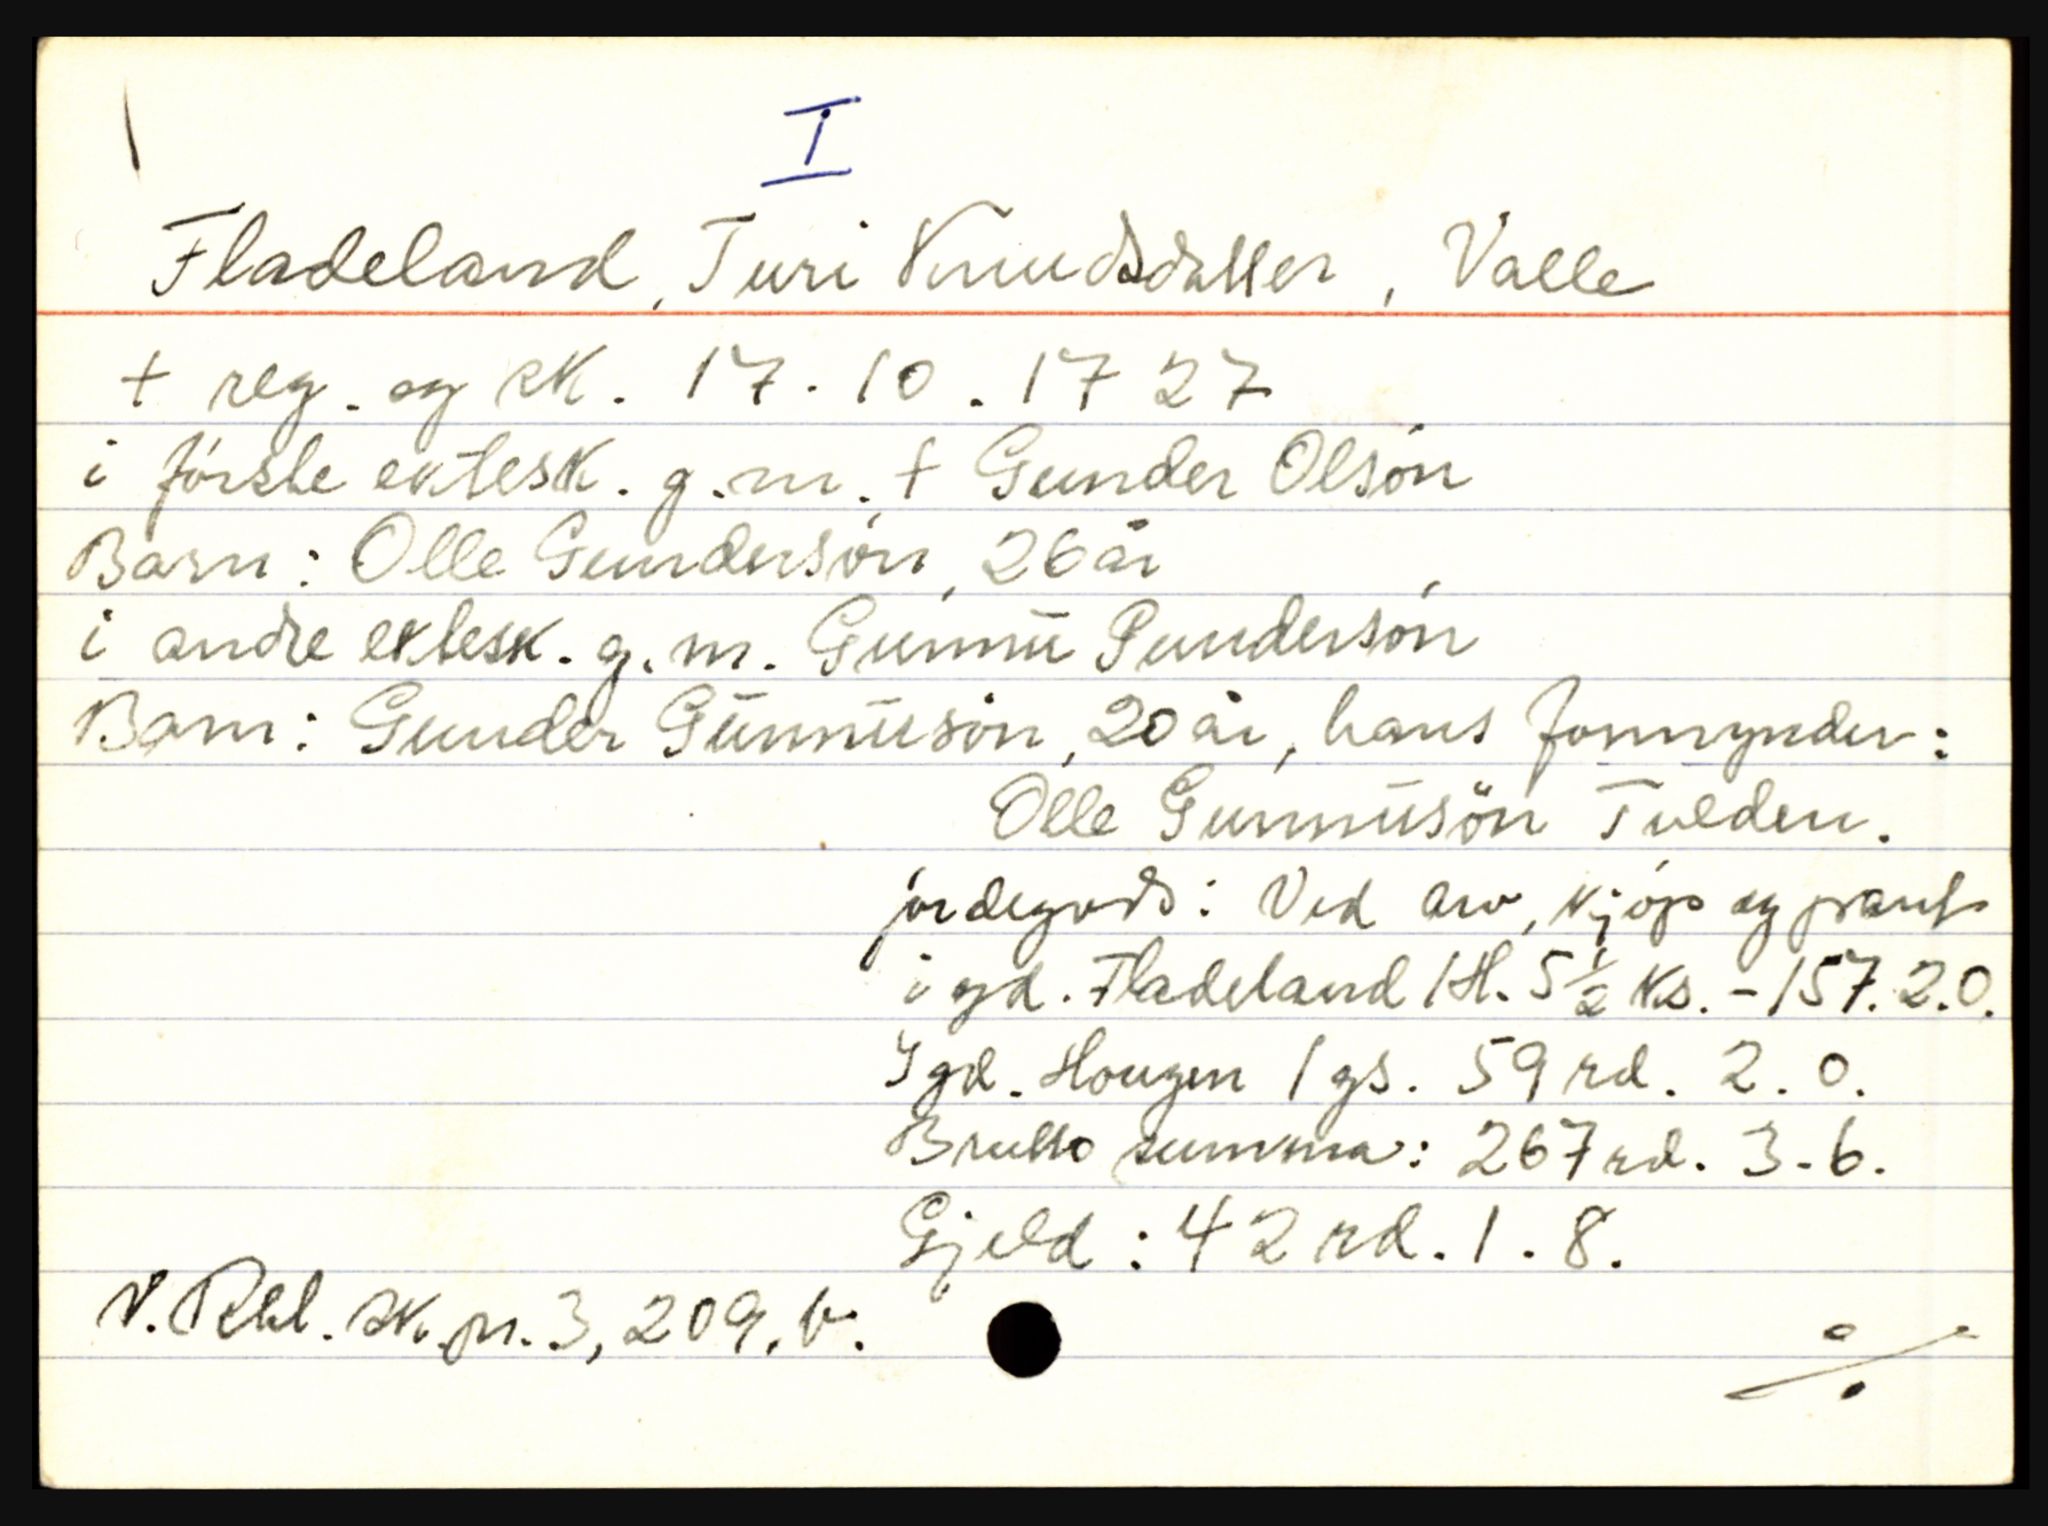 I
Fladeland, Turi Knudsdatter, Valle
+ reg. og sk. 17.10.1727
i förste ektesk. g.m. + Gunder Olsön
Barn: Olle Gundersön, 26 år
i andre ektesk. g.m. Gunnu Gundersön
Barn: Gunder Gunnusön, 20 år, hans formynder:
Olle Gunnusön Tveden.
jordegods: Ved arv, kjöp og pant
i gd. Fladeland 1 H. 5½ ks. - 157.2.0.
I gd. Hougen 1 gs. 59 rd. 2.0.
Brutto summa: 267 rd. 3-6.
Gjeld: 42 rd. 1.8.
V. Rbl. sk.pr. 3, 209, b.